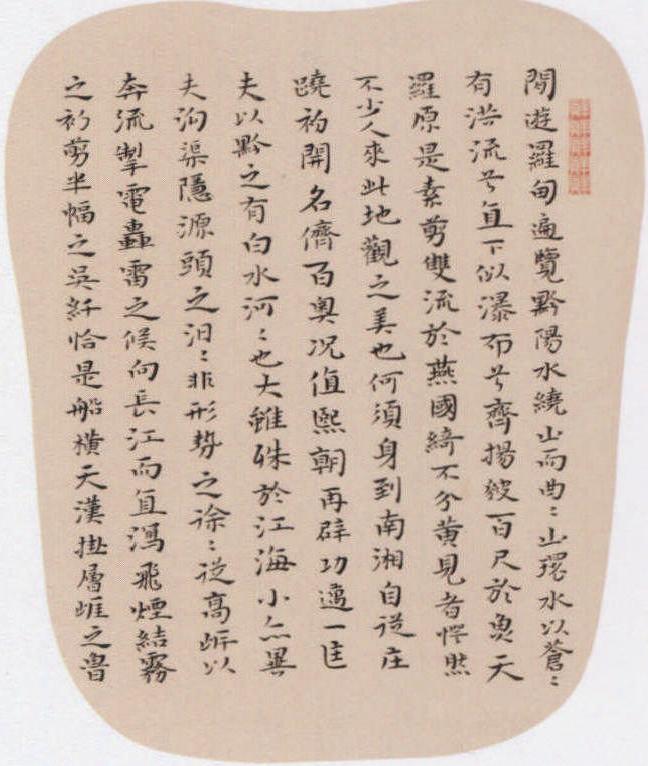 閒遊羅甸遍覽黔陽水繞山而曲〻山環水以蒼〻
有洪流兮直下似瀑布兮齊揚披百尺於魚天
羅原是素剪雙流於燕國綺不分黃見者愕然
不少人來此地觀之美也何須身到南湘自從庄
蹺初開名儕百奧况值熙朝再辟功邁一匡
夫以黔之有白水河〻也大雖殊於江海小亦異
夫泃渠隱源頭之汨〻非形勢之徐〻從高岍以
奔流掣電轟雷之候向長江而直瀉飛煙結霧
之初剪半幅之吳紆恰是船橫天漢掛層崕之魯